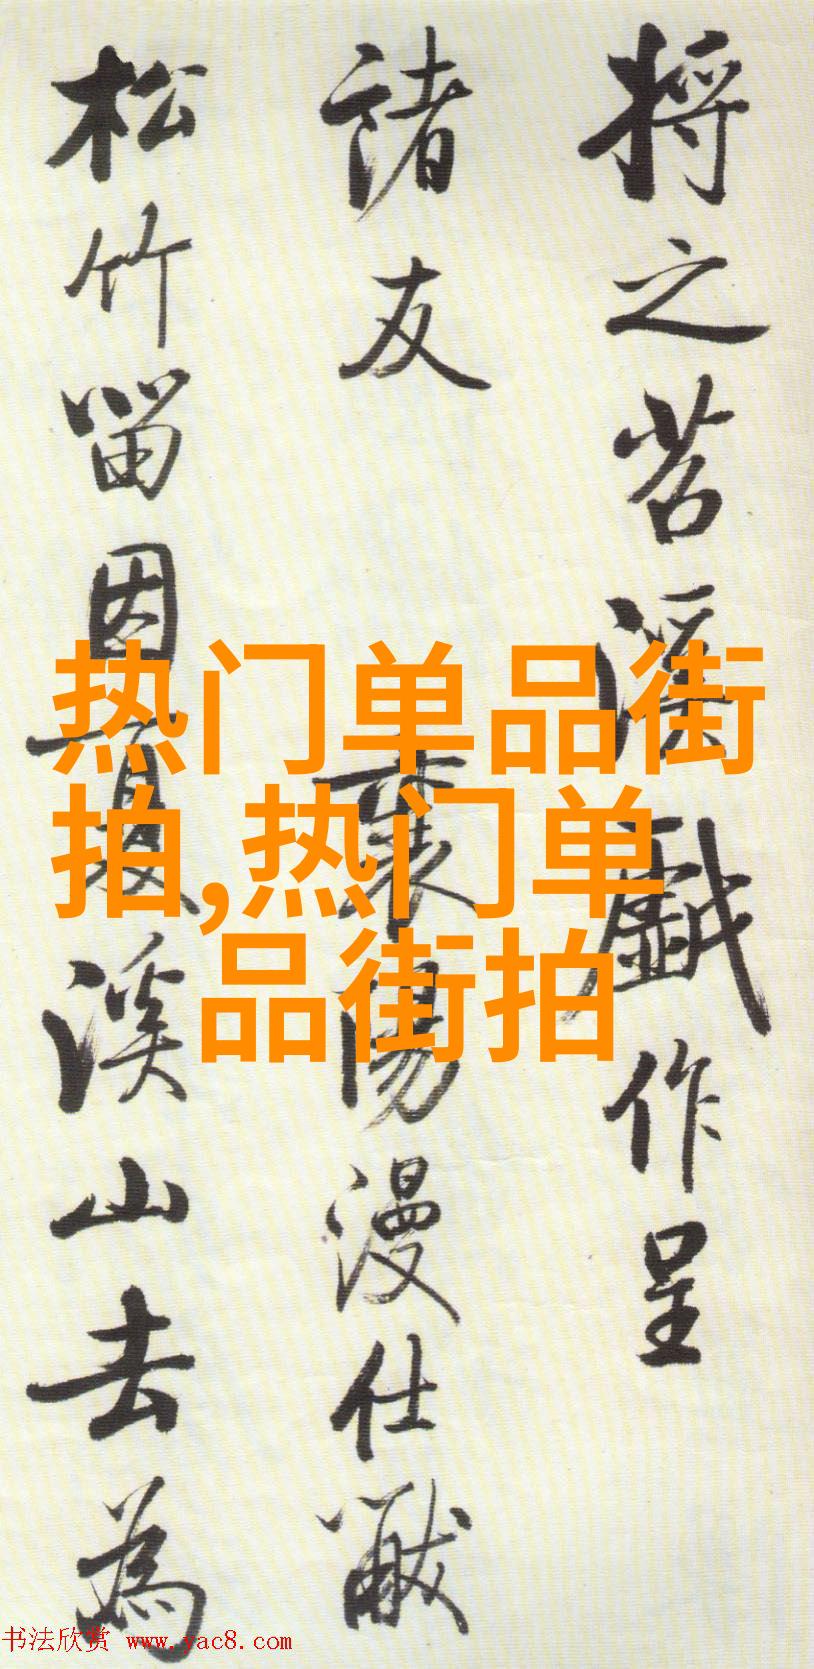 将之苕溪戲作呈
諸友
襄陽漫仕黻
松竹留因夏溪山去為
热门单品街
拍,热门单
品街拍
书法欣赏 www.yac8.com